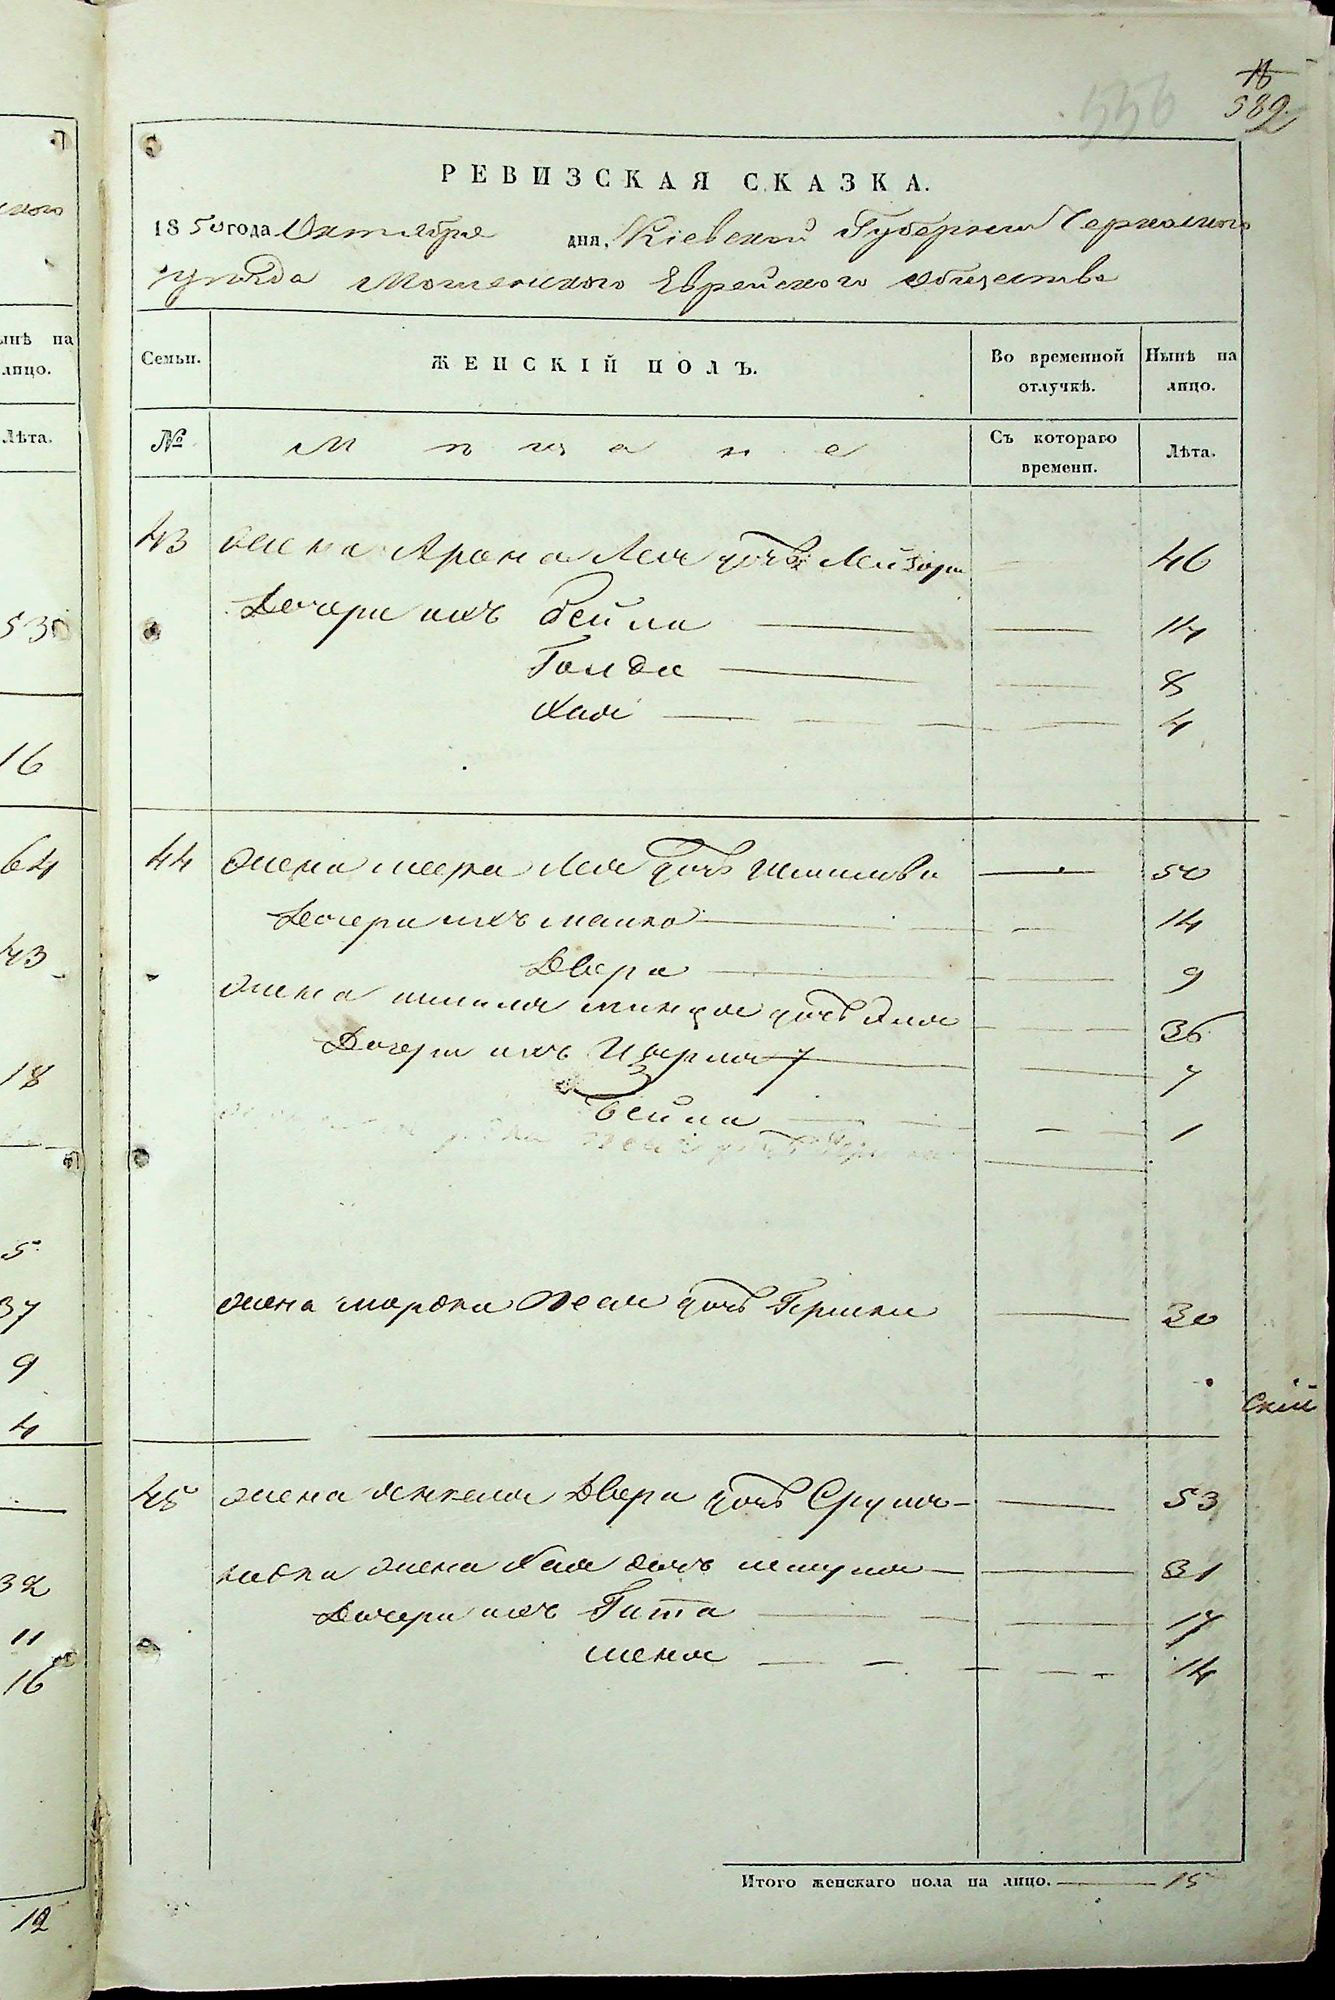 556
16
582
РЕВИЗСКАЯ СКАЗКА.
1850 года Октября дня, Кіевской Губерніи Черкаского
уѣзда Мошенского Еврейского общества
Семьи. ЖЕНСКІЙ ПОЛЪ. Во временной отлучкѣ. Нынѣ на лицо.
№ Мѣщане Съ котораго времени. Лѣта.
43 жена Арона Лея дочь Лейзора 46
Дочери ихъ Бейла 14
Голда 8
Хая 4
44 жена Меера Лея дочь Шмилива 50
Дочери ихъ Малка 14
Двера 9
жена Шмиля дочь 36
Дочери ихъ 7
Бейла 1
жена Мордка Песя дочь Гершка 30
скій
45 жена Янкеля Двера дочь Сруля 53
жена Хая дочь 31
Дочери ихъ Гитта 17
Шеня 14
Итого женскаго пола на лицо. 15
ского
ынѣ на
лицо.
Лѣта.
53
16
64
43
18
5
37
9
4
32
11
16
12